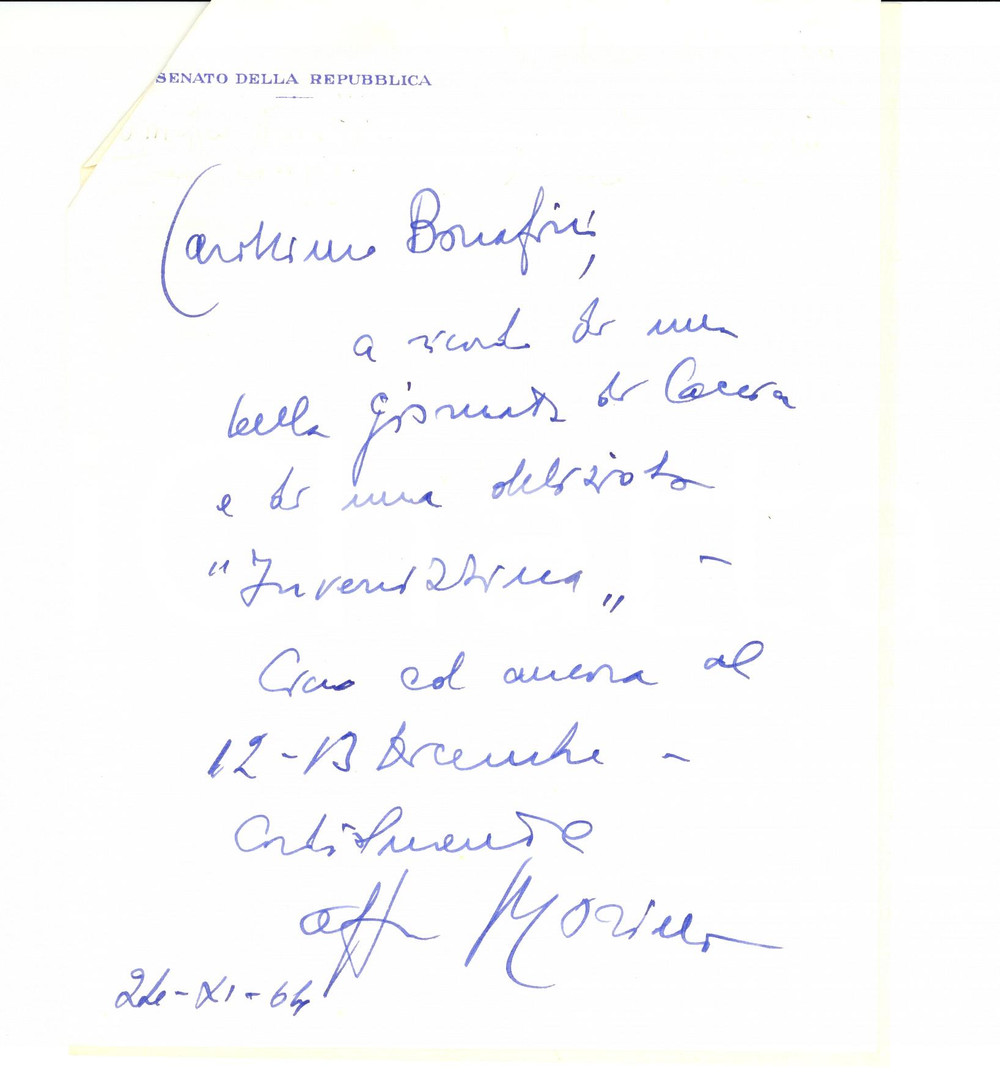 SENATO DELLA REPUBBLICA
Carissimo Bonafini,
a ricordo di una
bella giornata di Caccia
e di una deliziosa
" Invernizzina „ -
Ciao ed ancora al
12-13 dicembre -
Cordialmente
aff
24-XI-64